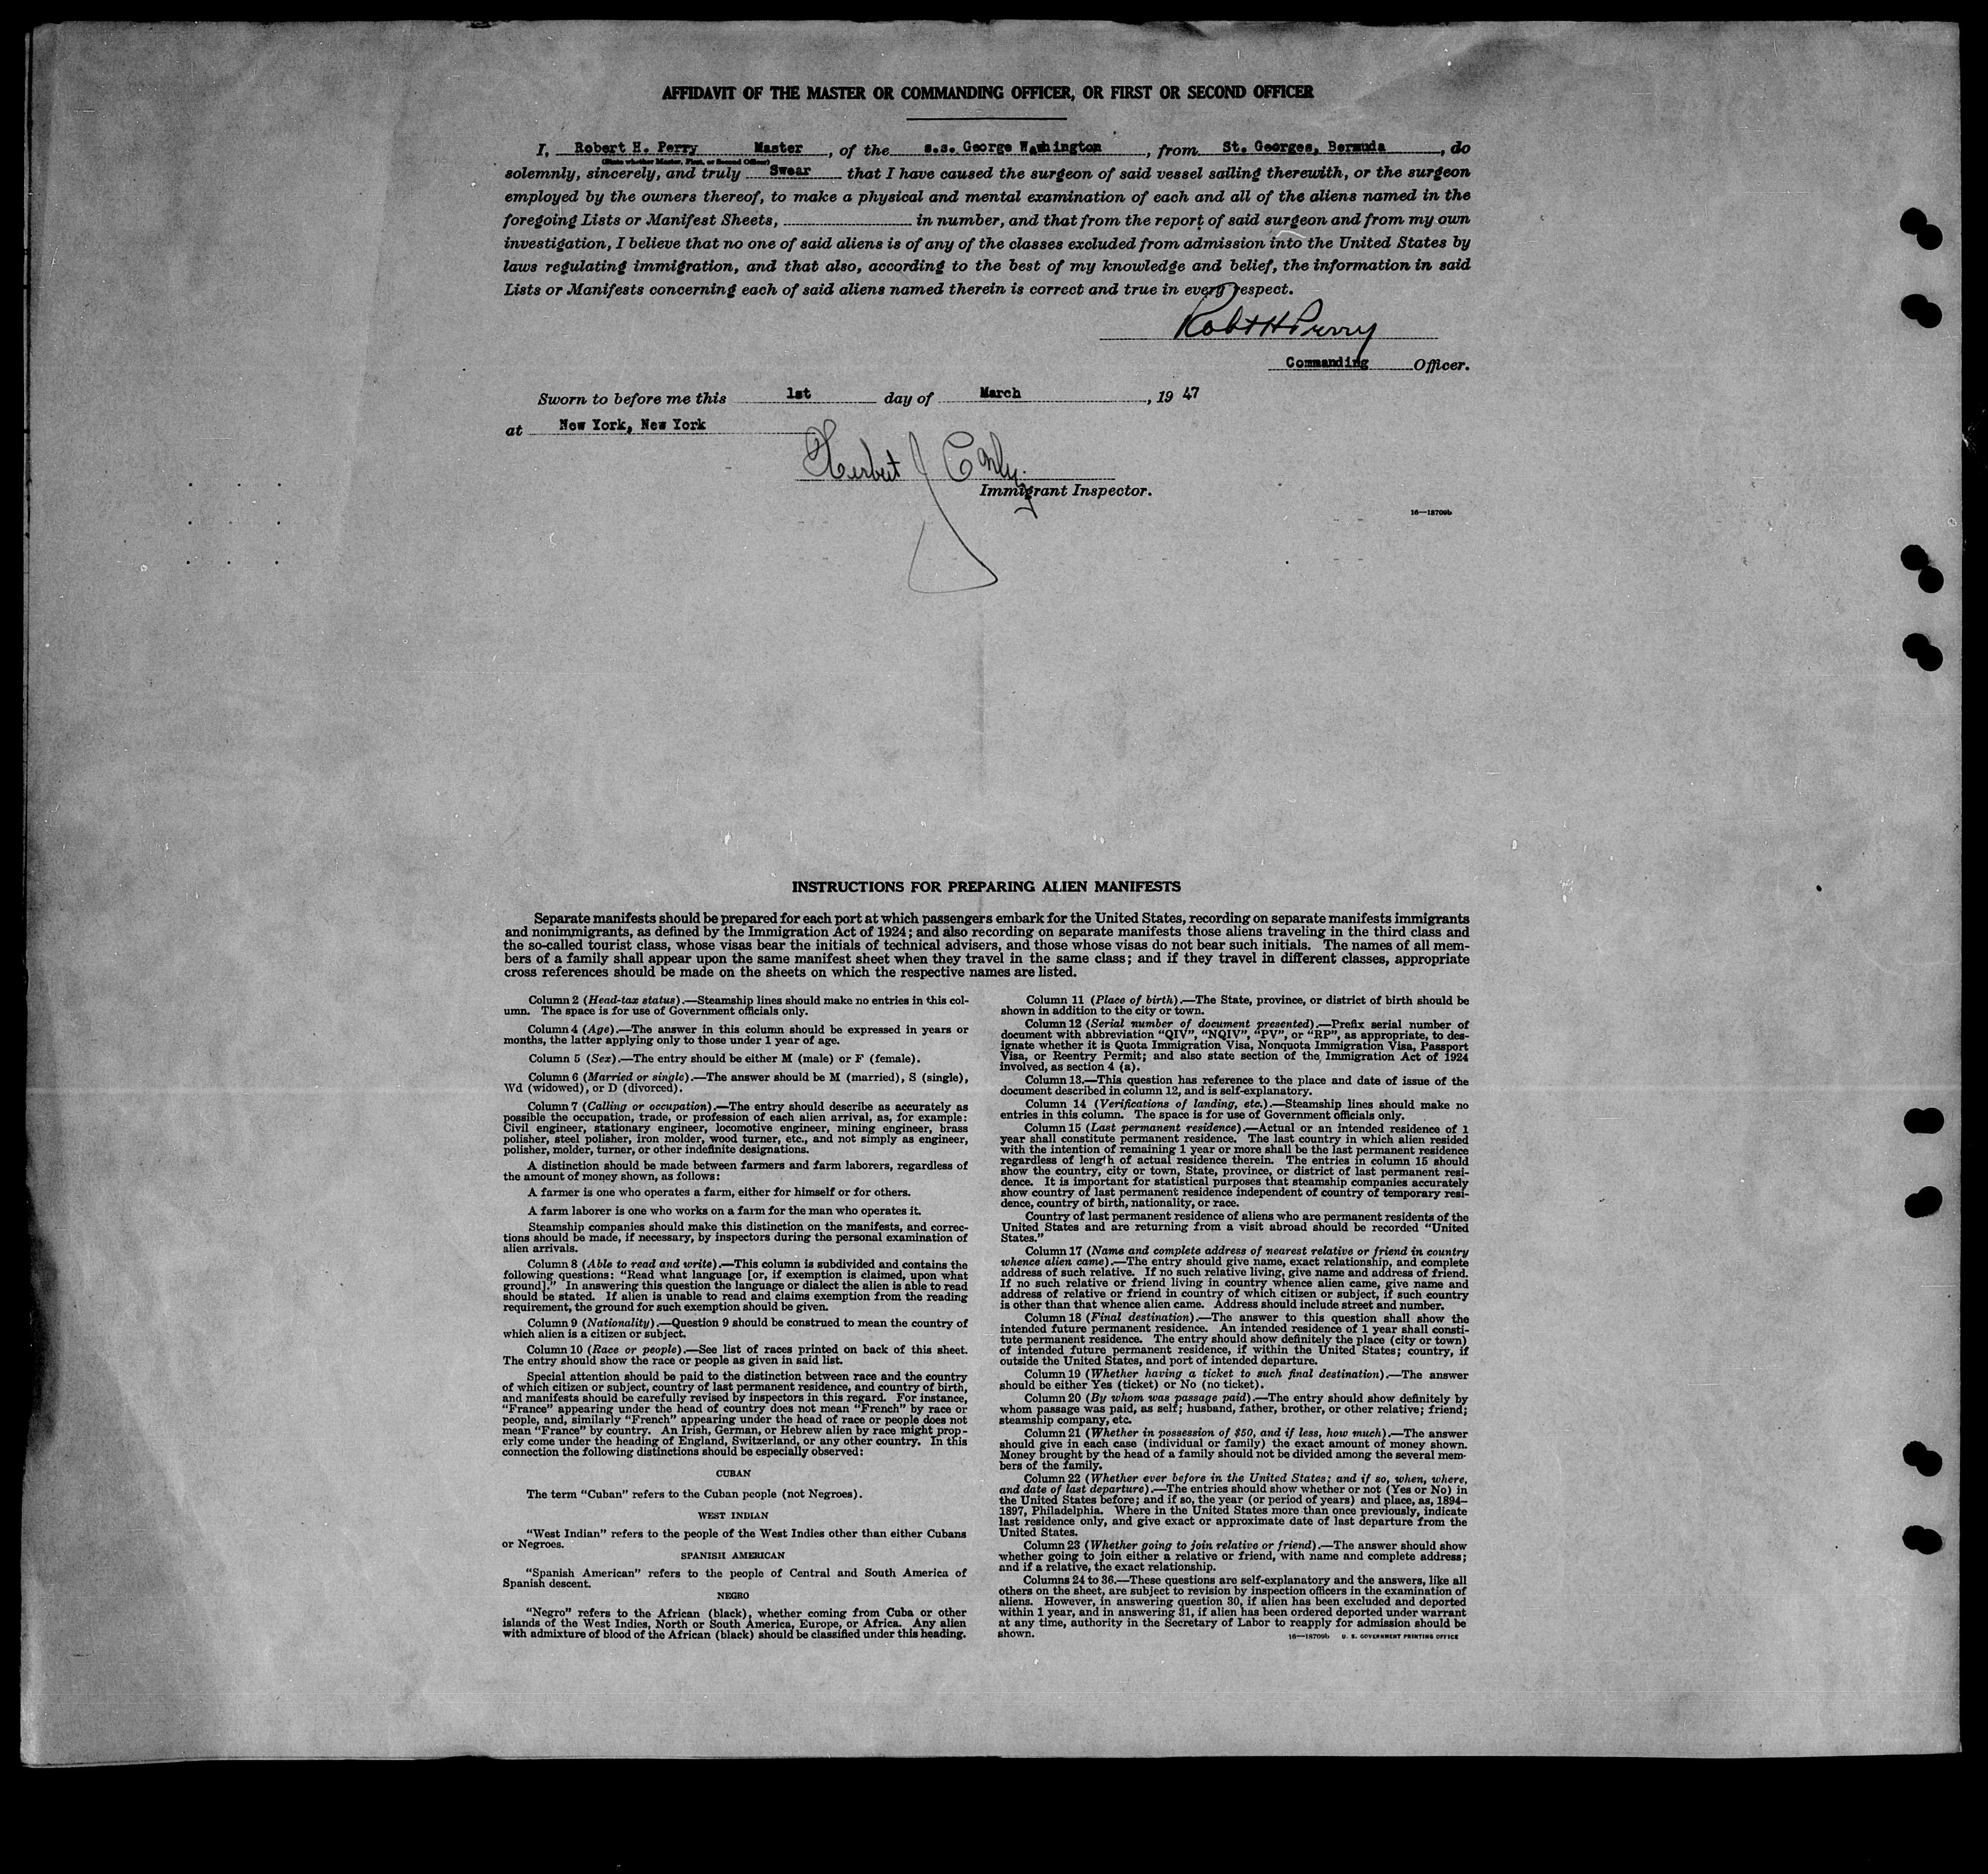 AFFIDAVIT OF THE MASTER OR COMMANDING OFFICER, OR FIRST OR SECOND OFFICER
I, Robert H. Perry Master, of the s.s. George Washington, from St. Georges, Bermuda, do
(State whether Master, First, or Second Officer)
solemnly, sincerely, and truly Swear that I have caused the surgeon of said vessel sailing therewith, or the surgeon
employed by the owners thereof, to make a physical and mental examination of each and all of the aliens named in the
foregoing Lists or Manifest Sheets, in number, and that from the report of said surgeon and from my own
investigation, I believe that no one of said aliens is of any of the classes excluded from admission into the United States by
laws regulating immigration, and that also, according to the best of my knowledge and belief, the information in said
Lists or Manifests concerning each of said aliens named therein is correct and true in every respect.
Robt H Perry
Commanding Officer.
Sworn to before me this 1st day of March, 19 47
at New York, New York
Herbert J
Immigrant Inspector.
16—18709b
INSTRUCTIONS FOR PREPARING ALIEN MANIFESTS
Separate manifests should be prepared for each port at which passengers embark for the United States, recording on separate manifests immigrants
and nonimmigrants, as defined by the Immigration Act of 1924; and also recording on separate manifests those aliens traveling in the third class and
the so-called tourist class, whose visas bear the initials of technical advisers, and those whose visas do not bear such initials. The names of all mem-
bers of a family shall appear upon the same manifest sheet when they travel in the same class; and if they travel in different classes, appropriate
cross references should be made on the sheets on which the respective names are listed.
Column 2 (Head-tax status).—Steamship lines should make no entries in this col-
umn. The space is for use of Government officials only.
Column 4 (Age).—The answer in this column should be expressed in years or
months, the latter applying only to those under 1 year of age.
Column 5 (Sex).—The entry should be either M (male) or F (female).
Column 6 (Married or single).—The answer should be M (married), S (single),
Wd (widowed), or D (divorced).
Column 7 (Calling or occupation).—The entry should describe as accurately as
possible the occupation, trade, or profession of each alien arrival, as, for example:
Civil engineer, stationary engineer, locomotive engineer, mining engineer, brass
polisher, steel polisher, iron molder, wood turner, etc., and not simply as engineer,
polisher, molder, turner, or other indefinite designations.
A distinction should be made between farmers and farm laborers, regardless of
the amount of money shown, as follows:
A farmer is one who operates a farm, either for himself or for others.
A farm laborer is one who works on a farm for the man who operates it.
Steamship companies should make this distinction on the manifests, and correc-
tions should be made, if necessary, by inspectors during the personal examination of
alien arrivals.
Column 8 (Able to read and write).—This column is subdivided and contains the
following questions: “Read what language [or, if exemption is claimed, upon what
ground].” In answering this question the language or dialect the alien is able to read
should be stated. If alien is unable to read and claims exemption from the reading
requirement, the ground for such exemption should be given.
Column 9 (Nationality).—Question 9 should be construed to mean the country of
which alien is a citizen or subject.
Column 10 (Race or people).—See list of races printed on back of this sheet.
The entry should show the race or people as given in said list.
Special attention should be paid to the distinction between race and the country
of which citizen or subject, country of last permanent residence, and country of birth,
and manifests should be carefully revised by inspectors in this regard. For instance,
“France” appearing under the head of country does not mean “French” by race or
people, and, similarly “French” appearing under the head of race or people does not
mean “France” by country. An Irish, German, or Hebrew alien by race might prop-
erly come under the heading of England, Switzerland, or any other country. In this
connection the following distinctions should be especially observed:
CUBAN
The term “Cuban” refers to the Cuban people (not Negroes).
WEST INDIAN
“West Indian” refers to the people of the West Indies other than either Cubans
or Negroes.
SPANISH AMERICAN
“Spanish American” refers to the people of Central and South America of
Spanish descent.
NEGRO
“Negro” refers to the African (black), whether coming from Cuba or other
islands of the West Indies, North or South America, Europe, or Africa. Any alien
with admixture of blood of the African (black) should be classified under this heading.
Column 11 (Place of birth).—The State, province, or district of birth should be
shown in addition to the city or town.
Column 12 (Serial number of document presented).—Prefix serial number of
document with abbreviation “QIV”, “NQIV”, “PV”, or “RP”, as appropriate, to des-
ignate whether it is Quota Immigration Visa, Nonquota Immigration Visa, Passport
Visa, or Reentry Permit; and also state section of the Immigration Act of 1924
involved, as section 4 (a).
Column 13.—This question has reference to the place and date of issue of the
document described in column 12, and is self-explanatory.
Column 14 (Verifications of landing, etc.).—Steamship lines should make no
entries in this column. The space is for use of Government officials only.
Column 15 (Last permanent residence).—Actual or an intended residence of 1
year shall constitute permanent residence. The last country in which alien resided
with the intention of remaining 1 year or more shall be the last permanent residence
regardless of length of actual residence therein. The entries in column 15 should
show the country, city or town, State, province, or district of last permanent resi-
dence. It is important for statistical purposes that steamship companies accurately
show country of last permanent residence independent of country of temporary resi-
dence, country of birth, nationality, or race.
Country of last permanent residence of aliens who are permanent residents of the
United States and are returning from a visit abroad should be recorded “United
States.”
Column 17 (Name and complete address of nearest relative or friend in country
whence alien came).—The entry should give name, exact relationship, and complete
address of such relative. If no such relative living, give name and address of friend.
If no such relative or friend living in country whence alien came, give name and
address of relative or friend in country of which citizen or subject, if such country
is other than that whence alien came. Address should include street and number.
Column 18 (Final destination).—The answer to this question shall show the
intended future permanent residence. An intended residence of 1 year shall consti-
tute permanent residence. The entry should show definitely the place (city or town)
of intended future permanent residence, if within the United States; country, if
outside the United States, and port of intended departure.
Column 19 (Whether having a ticket to such final destination).—The answer
should be either Yes (ticket) or No (no ticket).
Column 20 (By whom was passage paid).—The entry should show definitely by
whom passage was paid, as self; husband, father, brother, or other relative; friend;
steamship company, etc.
Column 21 (Whether in possession of $50, and if less, how much).—The answer
should give in each case (individual or family) the exact amount of money shown.
Money brought by the head of a family should not be divided among the several mem-
bers of the family.
Column 22 (Whether ever before in the United States; and if so, when, where,
and date of last departure).—The entries should show whether or not (Yes or No) in
the United States before; and if so, the year (or period of years) and place, as, 1894–
1897, Philadelphia. Where in the United States more than once previously, indicate
last residence only, and give exact or approximate date of last departure from the
United States.
Column 23 (Whether going to join relative or friend).—The answer should show
whether going to join either a relative or friend, with name and complete address;
and if a relative, the exact relationship.
Columns 24 to 36.—These questions are self-explanatory and the answers, like all
others on the sheet, are subject to revision by inspection officers in the examination of
aliens. However, in answering question 30, if alien has been excluded and deported
within 1 year, and in answering 31, if alien has been ordered deported under warrant
at any time, authority in the Secretary of Labor to reapply for admission should be
shown.
16—18709b U. S. GOVERNMENT PRINTING OFFICE